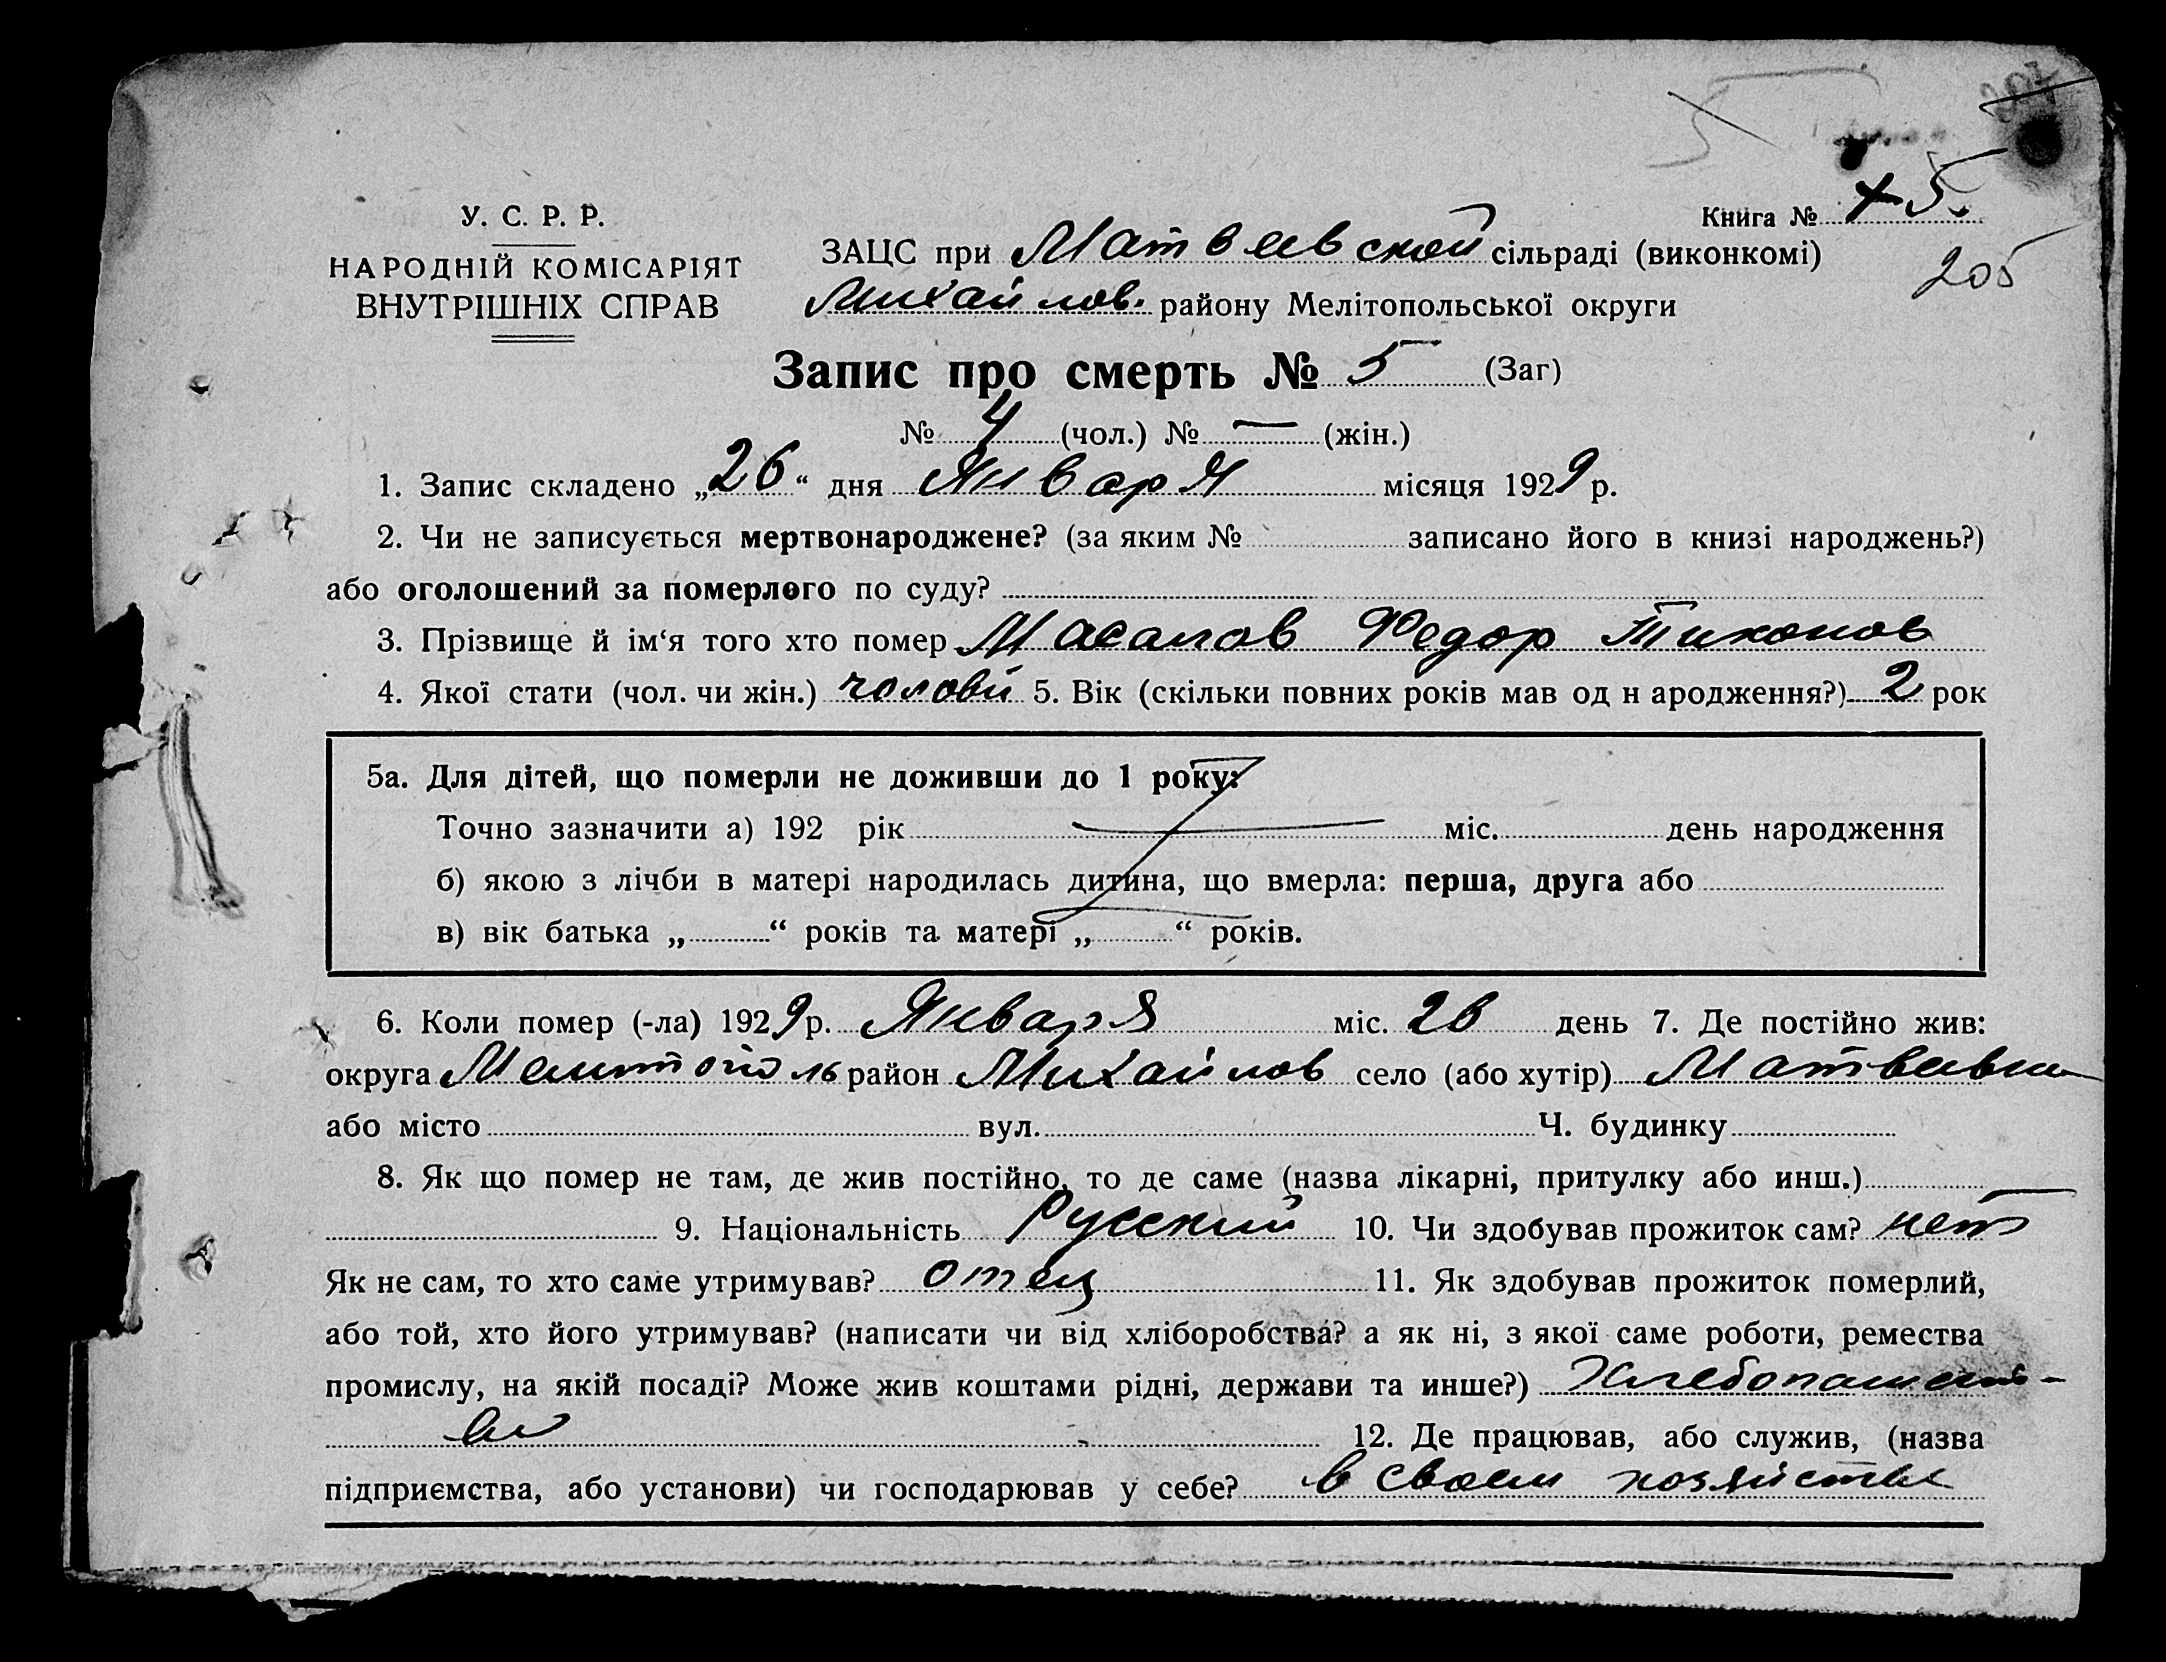 207
У. С. Р. Р.
НАРОДНІЙ КОМІСАРІЯТ
ВНУТРІШНІХ СПРАВ
Книга № 5.
ЗАЦС при Матвеевской сільраді (виконкомі)
205
Михайлов. району Мелітопольської округи
Запис про смерть № 5 (Заг)
№ 4 (чол.) № — (жін.)
1. Запис складено „26“ дня Января місяця 1929 р.
2. Чи не записується мертвонароджене? (за яким № записано його в книзі народжень?)
або оголошений за померлого по суду?
3. Прізвище й ім‘я того хто помер Масалов Федор Тихонов
4. Якої стати (чол. чи жін.) чолові 5. Вік (скільки повних років мав од н ародження?) 2 рок
5а. Для дітей, що померли не доживши до 1 року:
Точно зазначити а) 192 рік міс. день народження
б) якою з лічби в матері народилась дитина, що вмерла: перша, друга або
в) вік батька „ “ років та матері „ “ років.
6. Коли помер (-ла) 1929 р. Января міс. день 7. Де постійно жив:
округа Мелитополь район Михайлов село (або хутір) Матвеевка
або місто вул. Ч. будинку
8. Як що помер не там, де жив постійно, то де саме (назва лікарні, притулку або инш.)
9. Національність Русский 10. Чи здобував прожиток сам? нет
Як не сам, то хто саме утримував? отец 11. Як здобував прожиток померлий,
або той, хто його утримував? (написати чи від хліборобства? а як ні, з якої саме роботи, ремества
промислу, на якій посаді? Може жив коштами рідні, держави та инше?) Хлебопашест-
во 12. Де працював, або служив, (назва
підприємства, або установи) чи господарював у себе? в своем хозяйстве